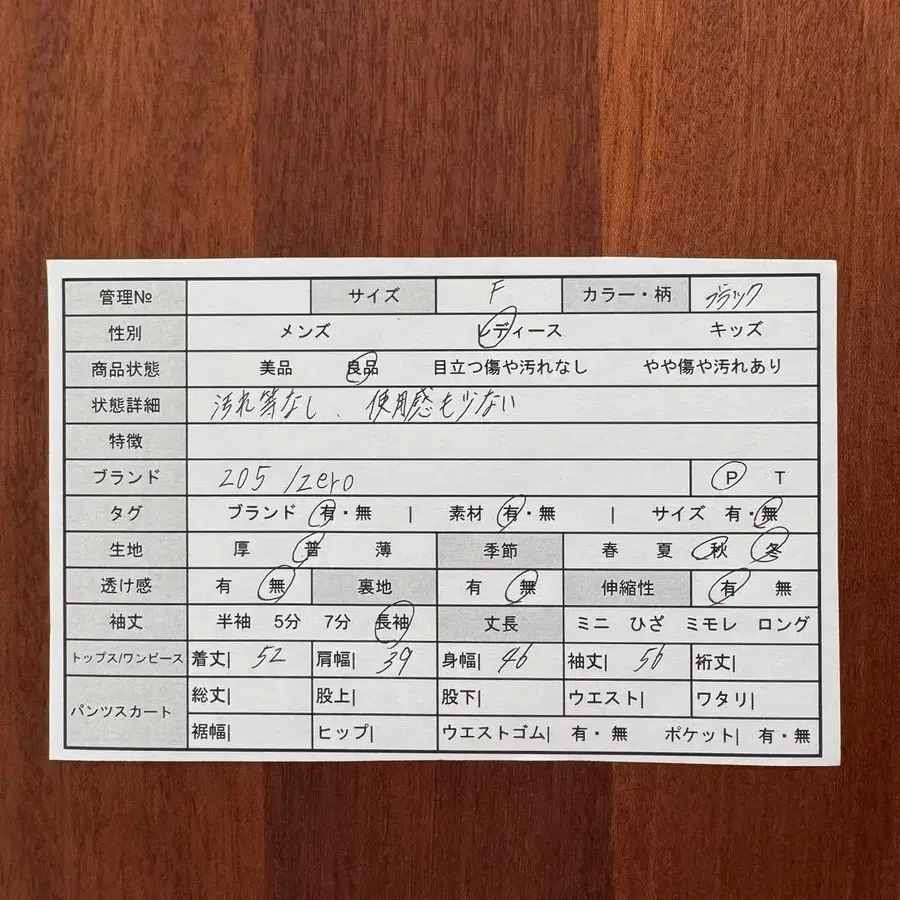 管理№ サイズ F カラー・柄 ブラック
性別 メンズ レディース キッズ
商品状態 美品 良品 目立つ傷や汚れなし やや傷や汚れあり
状態詳細 汚れ等なし、使用感も少ない
特徴
ブランド 205/zero P T
タグ ブランド 有・無 | 素材 有・無 | サイズ 有・無
生地 厚 普 薄 季節 春 夏 秋 冬
透け感 有 無 裏地 有 無 伸縮性 有 無
袖丈 半袖 5分 7分 長袖 丈長 ミニ ひざ ミモレ ロング
トップス/ワンピース 着丈| 52 肩幅| 39 身幅| 46 袖丈| 56 裄丈|
パンツスカート 総丈| 股上| 股下| ウエスト| ワタリ|
裾幅| ヒップ| ウエストゴム| 有・無 ポケット| 有・無